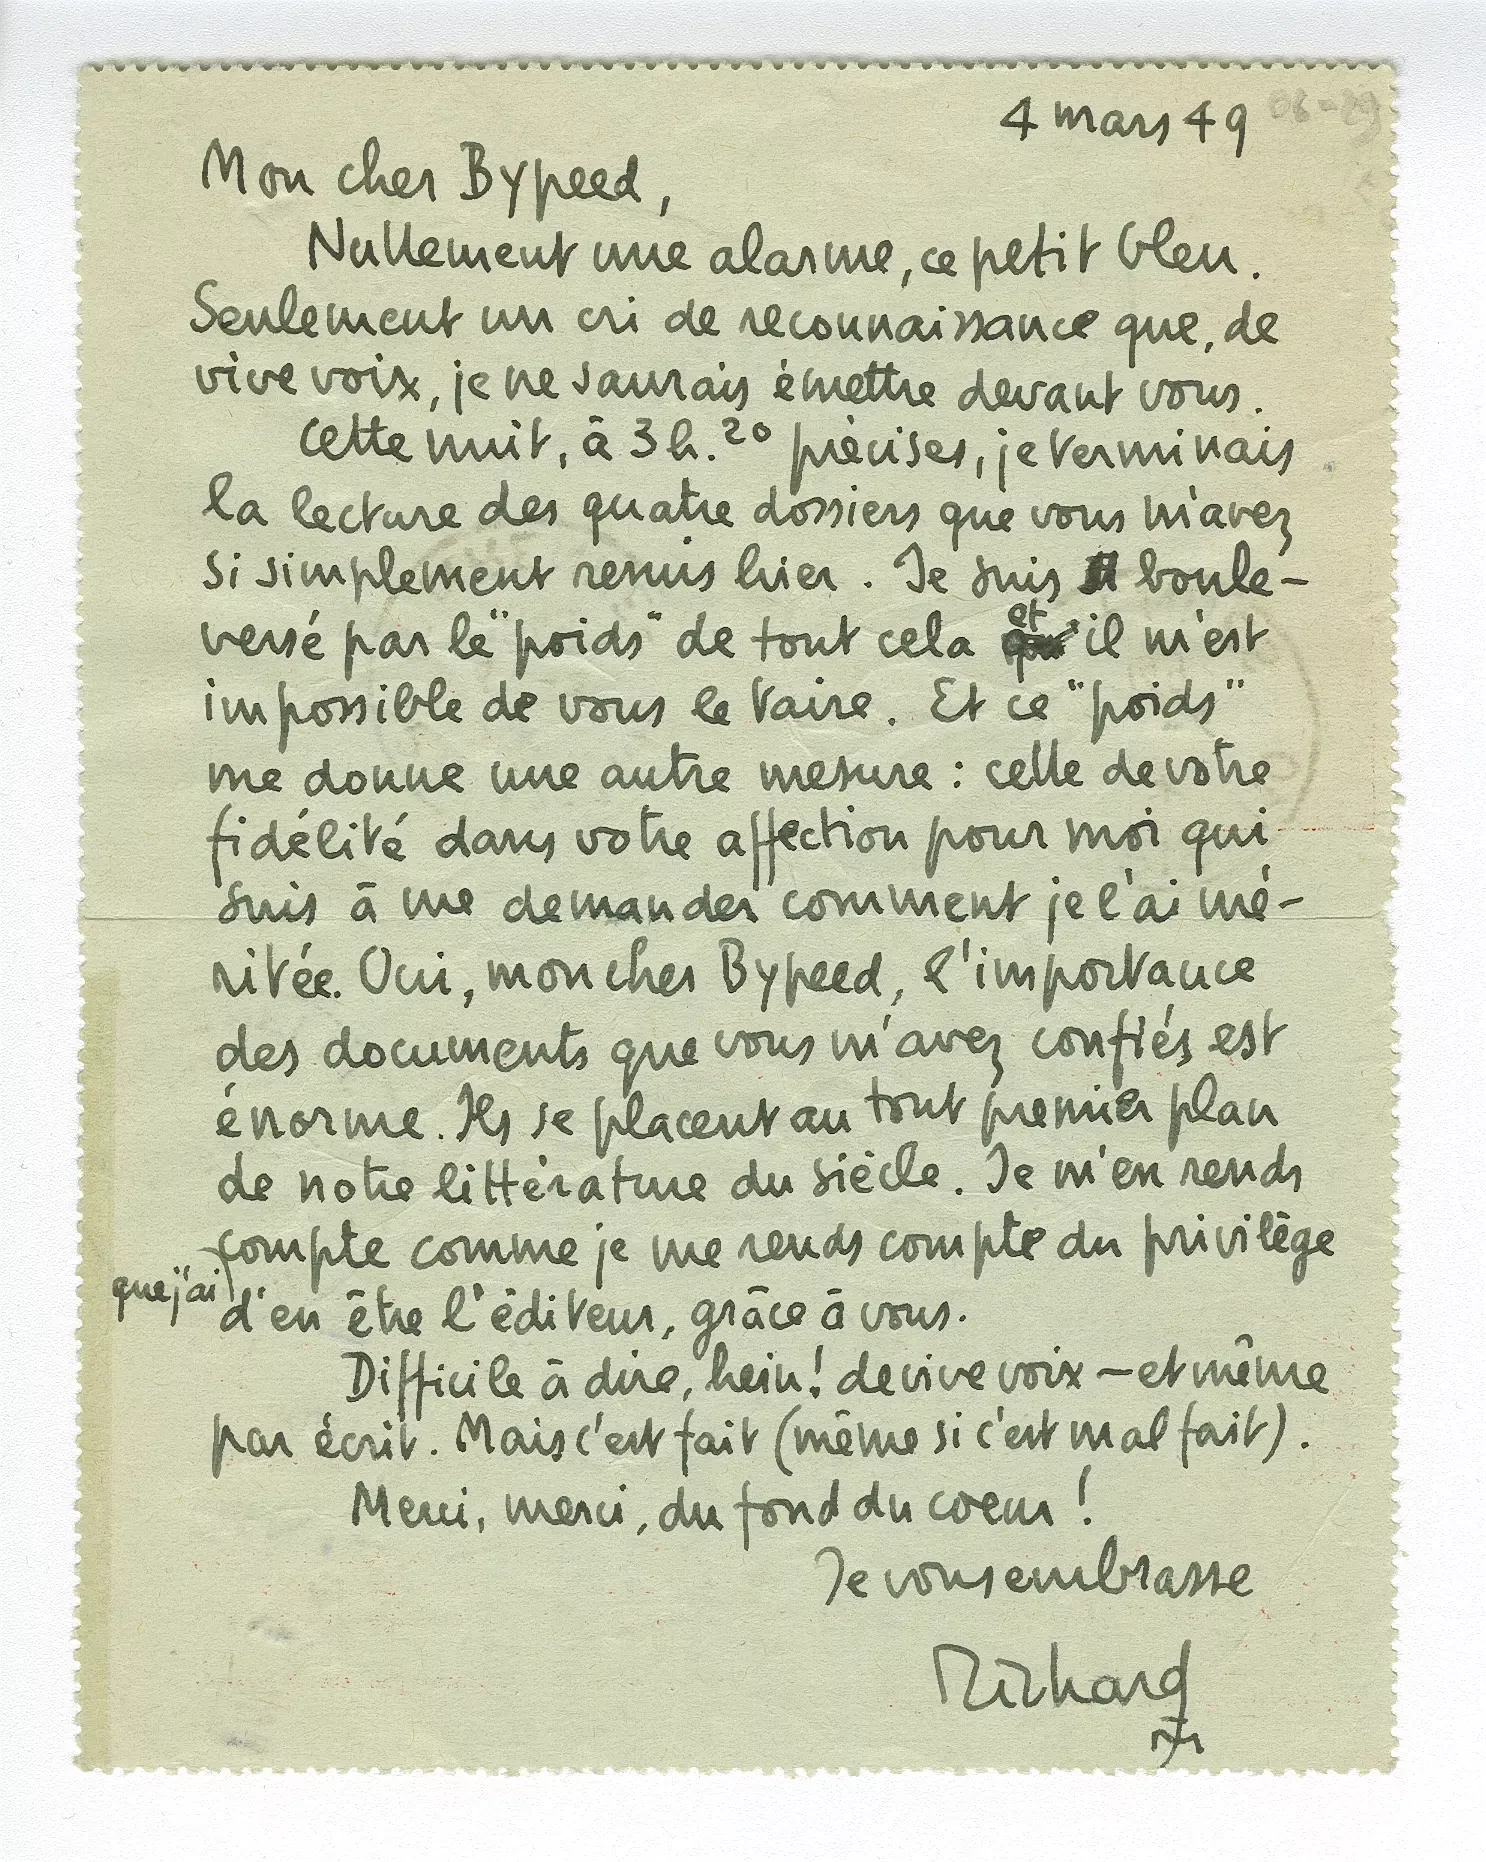 4 mars 49
Mon cher Bypeed,
Nullement une alarme, ce petit bleu.
Seulement un cri de reconnaissance que, de
vive voix, je ne saurais émettre devant vous.
Cette nuit, à 3 h. 20 précises, je terminais
la lecture des quatre dossiers que vous m'avez
si simplement remis hier. Je suis boule-
versé par le "poids" de tout cela et il m'est
impossible de vous le taire. Et ce "poids"
me donne une autre mesure : celle de votre
fidélité dans votre affection pour moi qui
suis à me demander comment je l'ai mé-
ritée. Oui, mon cher Bypeed, l'importance
des documents que vous m'avez confiés est
énorme. Ils se placent au tout premier plan
de notre littérature du siècle. Je m'en rends
compte comme je me rends compte du privilège
que j'ai d'en être l'éditeur, grâce à vous.
Difficile à dire, hein! de vive voix — et même
par écrit. Mais c'est fait (même si c'est mal fait).
Merci, merci, du fond du coeur !
Je vous embrasse
Richard